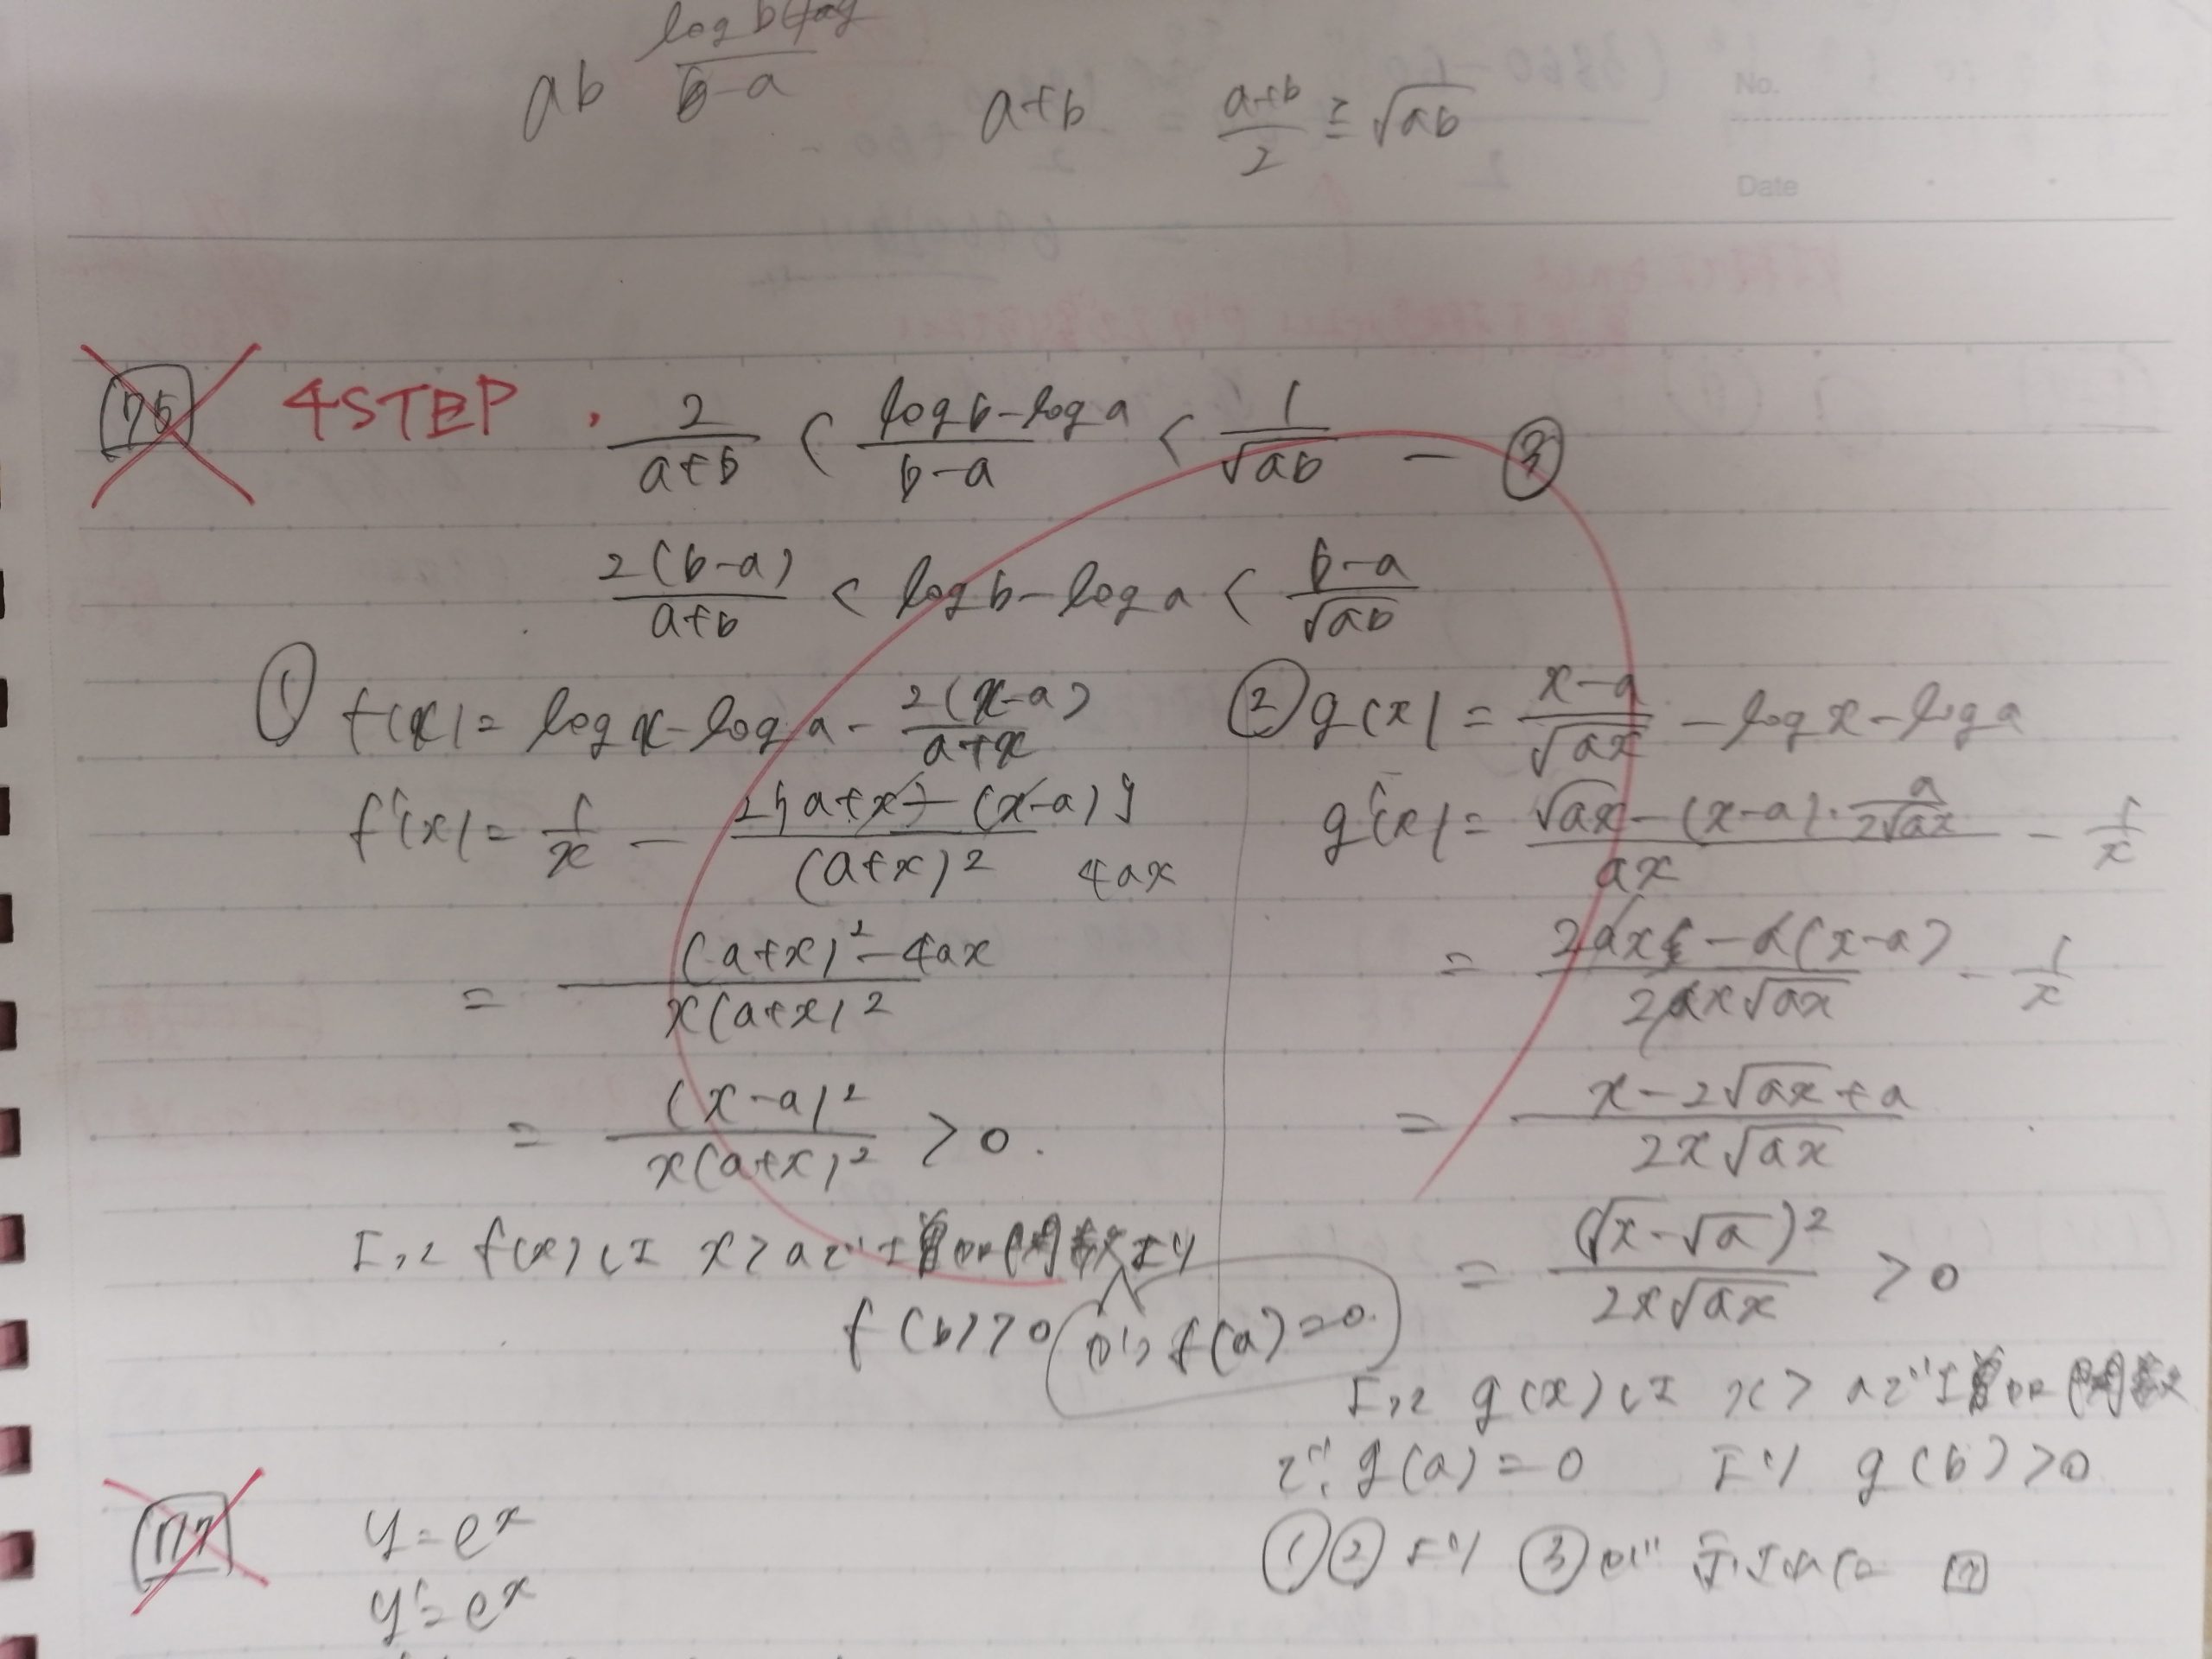 ab log b / b-a a+b a+b/2 ≧ √ab
No.
Date
175 4STEP. 2/(a+b) < (log b - log a)/(b-a) < 1/√ab — ③
2(b-a)/(a+b) < log b - log a < (b-a)/√ab
① f(x) = log x - log a - 2(x-a)/(a+x)
f'(x) = 1/x - 2{(a+x) - (x-a)}/(a+x)² 4ax
= ((a+x)² - 4ax)/(x(a+x)²)
= (x-a)²/(x(a+x)²) > 0.
よって f(x)は x>aで増加関数より
f(b)>0 かつ f(a)=0.
② g(x) = (x-a)/√ax - log x - log a
g'(x) = (√ax - (x-a)・a/(2√ax))/ax - 1/x
= (2ax - a(x-a))/(2ax√ax) - 1/x
= (x - 2√ax + a)/(2x√ax)
= (√x - √a)²/(2x√ax) > 0
よって g(x)は x>aで増加関数
で、g(a)=0 より g(b)>0
①②より ③が示された
177 y=eˣ
y'=eˣ